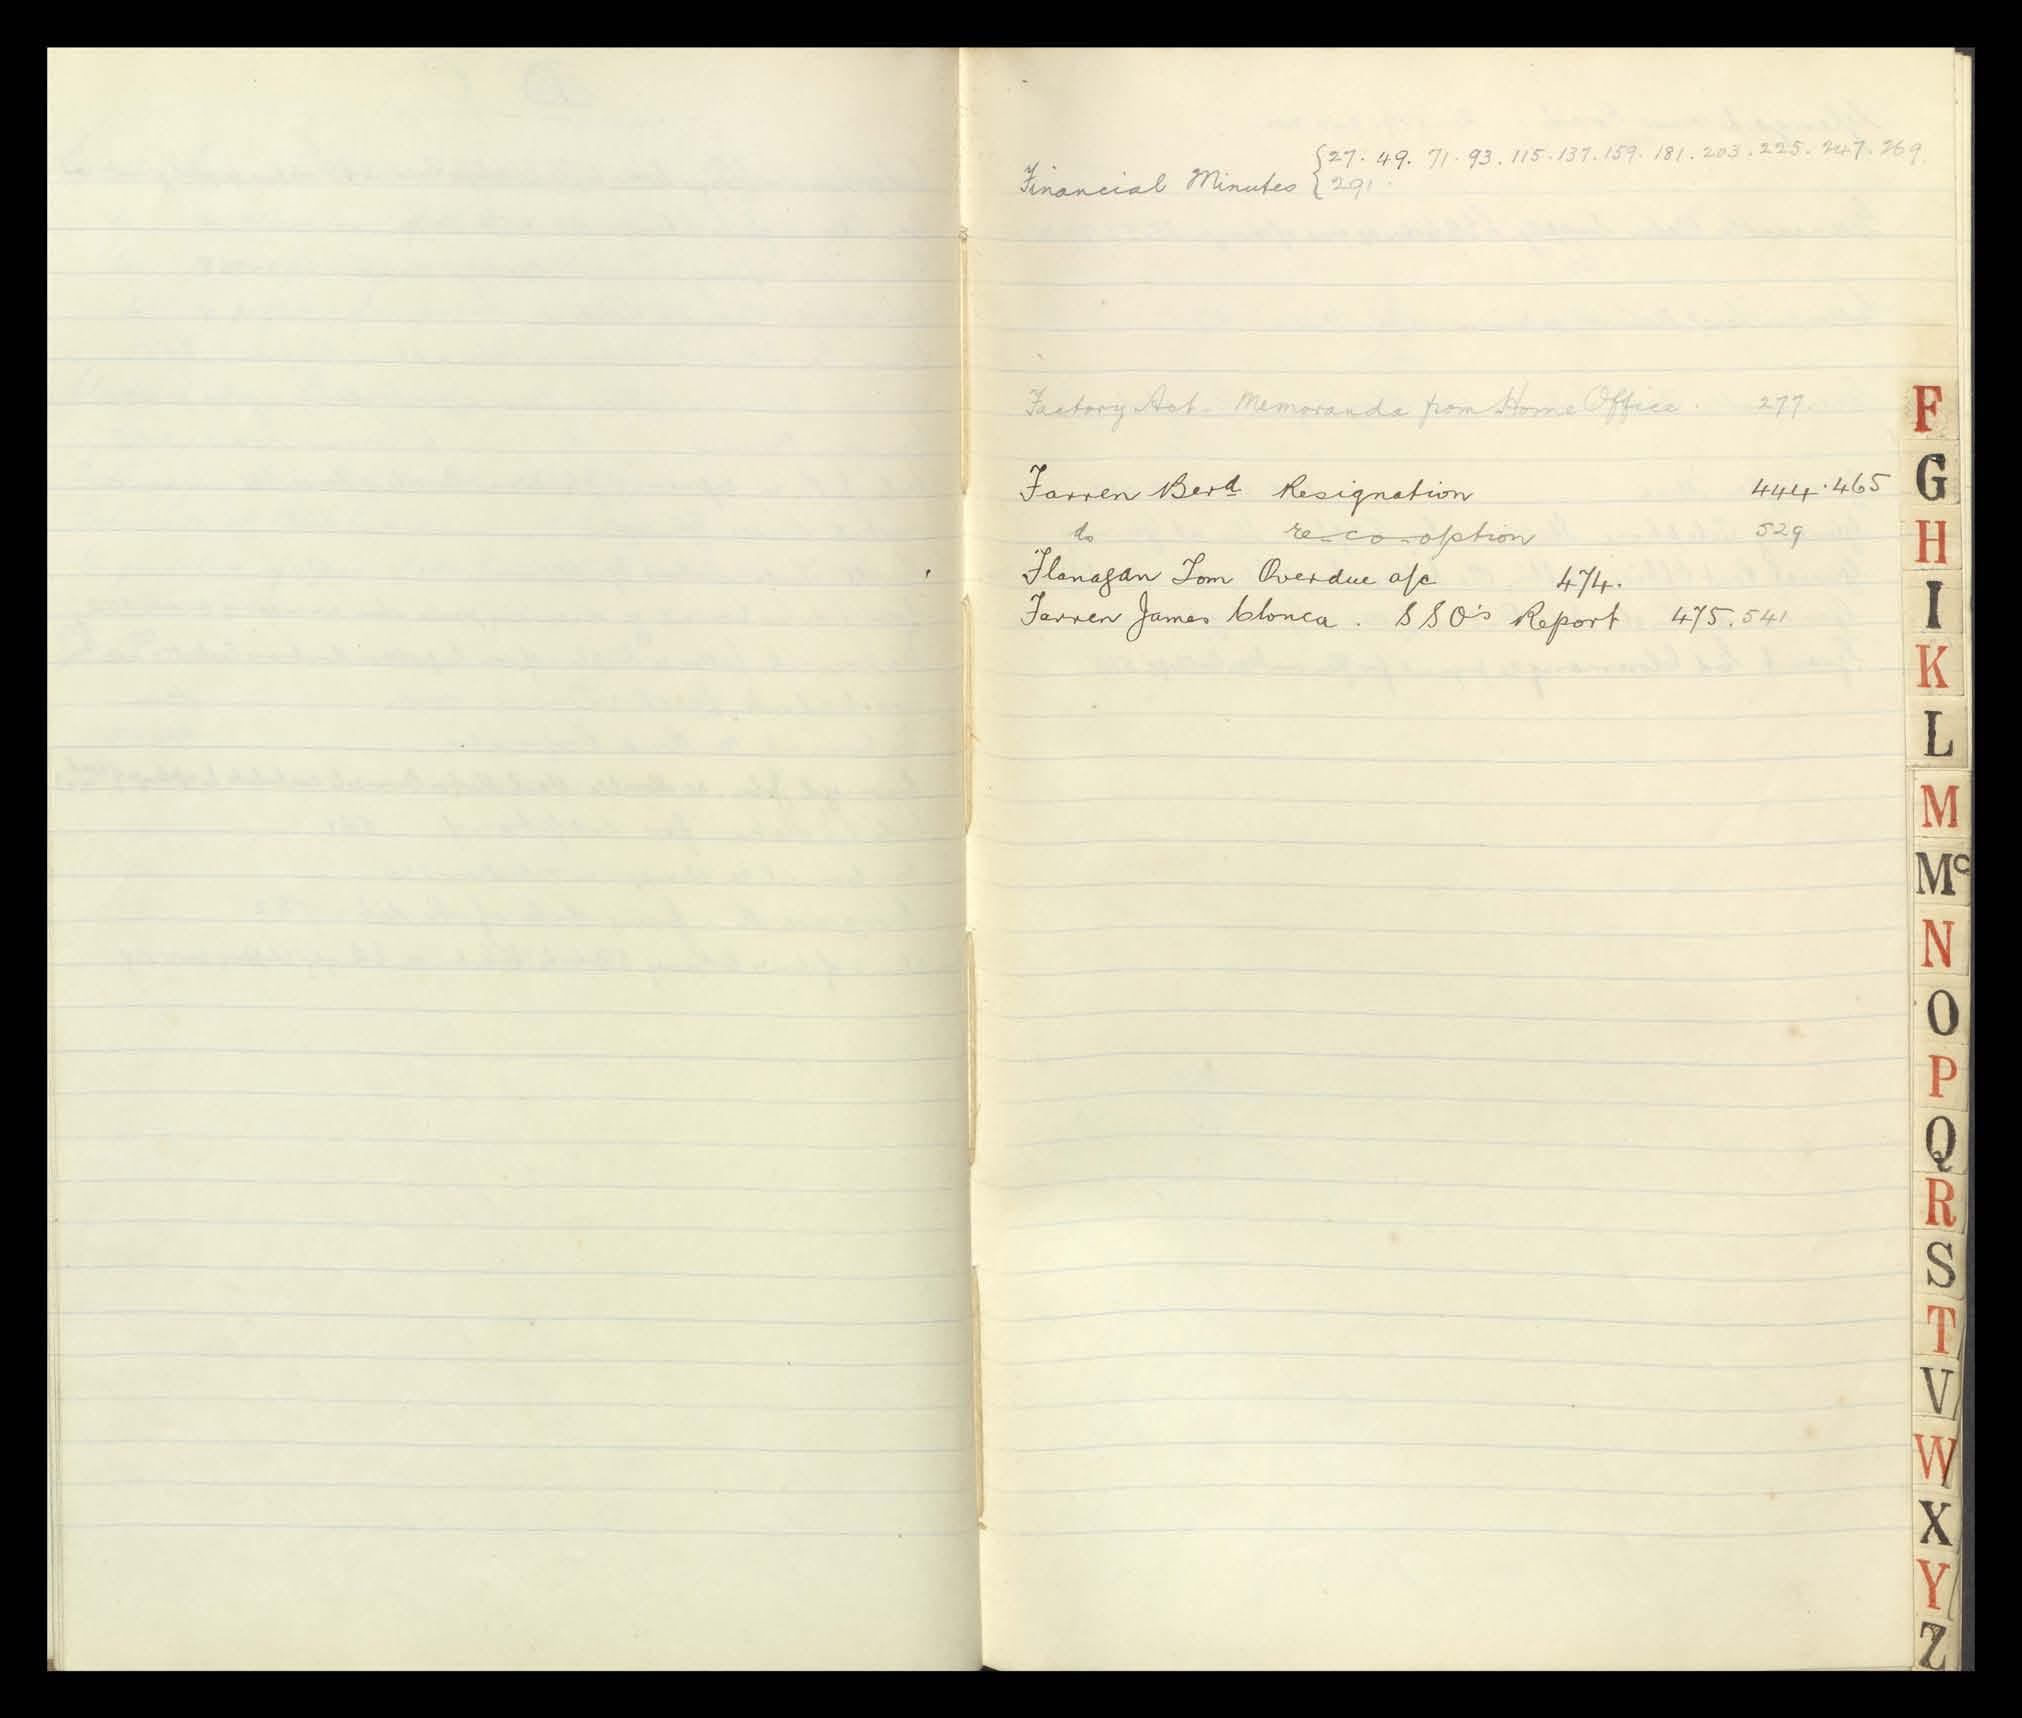 27. 49. 71. 93. 115. 137. 159. 181. 203. 225. 247. 269.
Financial Minutes { 291.
Factory Act. Memoranda from Home Office. 277.
Farren Berd Resignation 444. 465
do re-co-option 529
Flanagan Tom Overdue a/c 474.
Farren James Clonca. S S O's Report 475. 541
F
G
H
I
K
L
M
Mc
N
O
P
Q
R
S
T
V
W
X
Y
Z